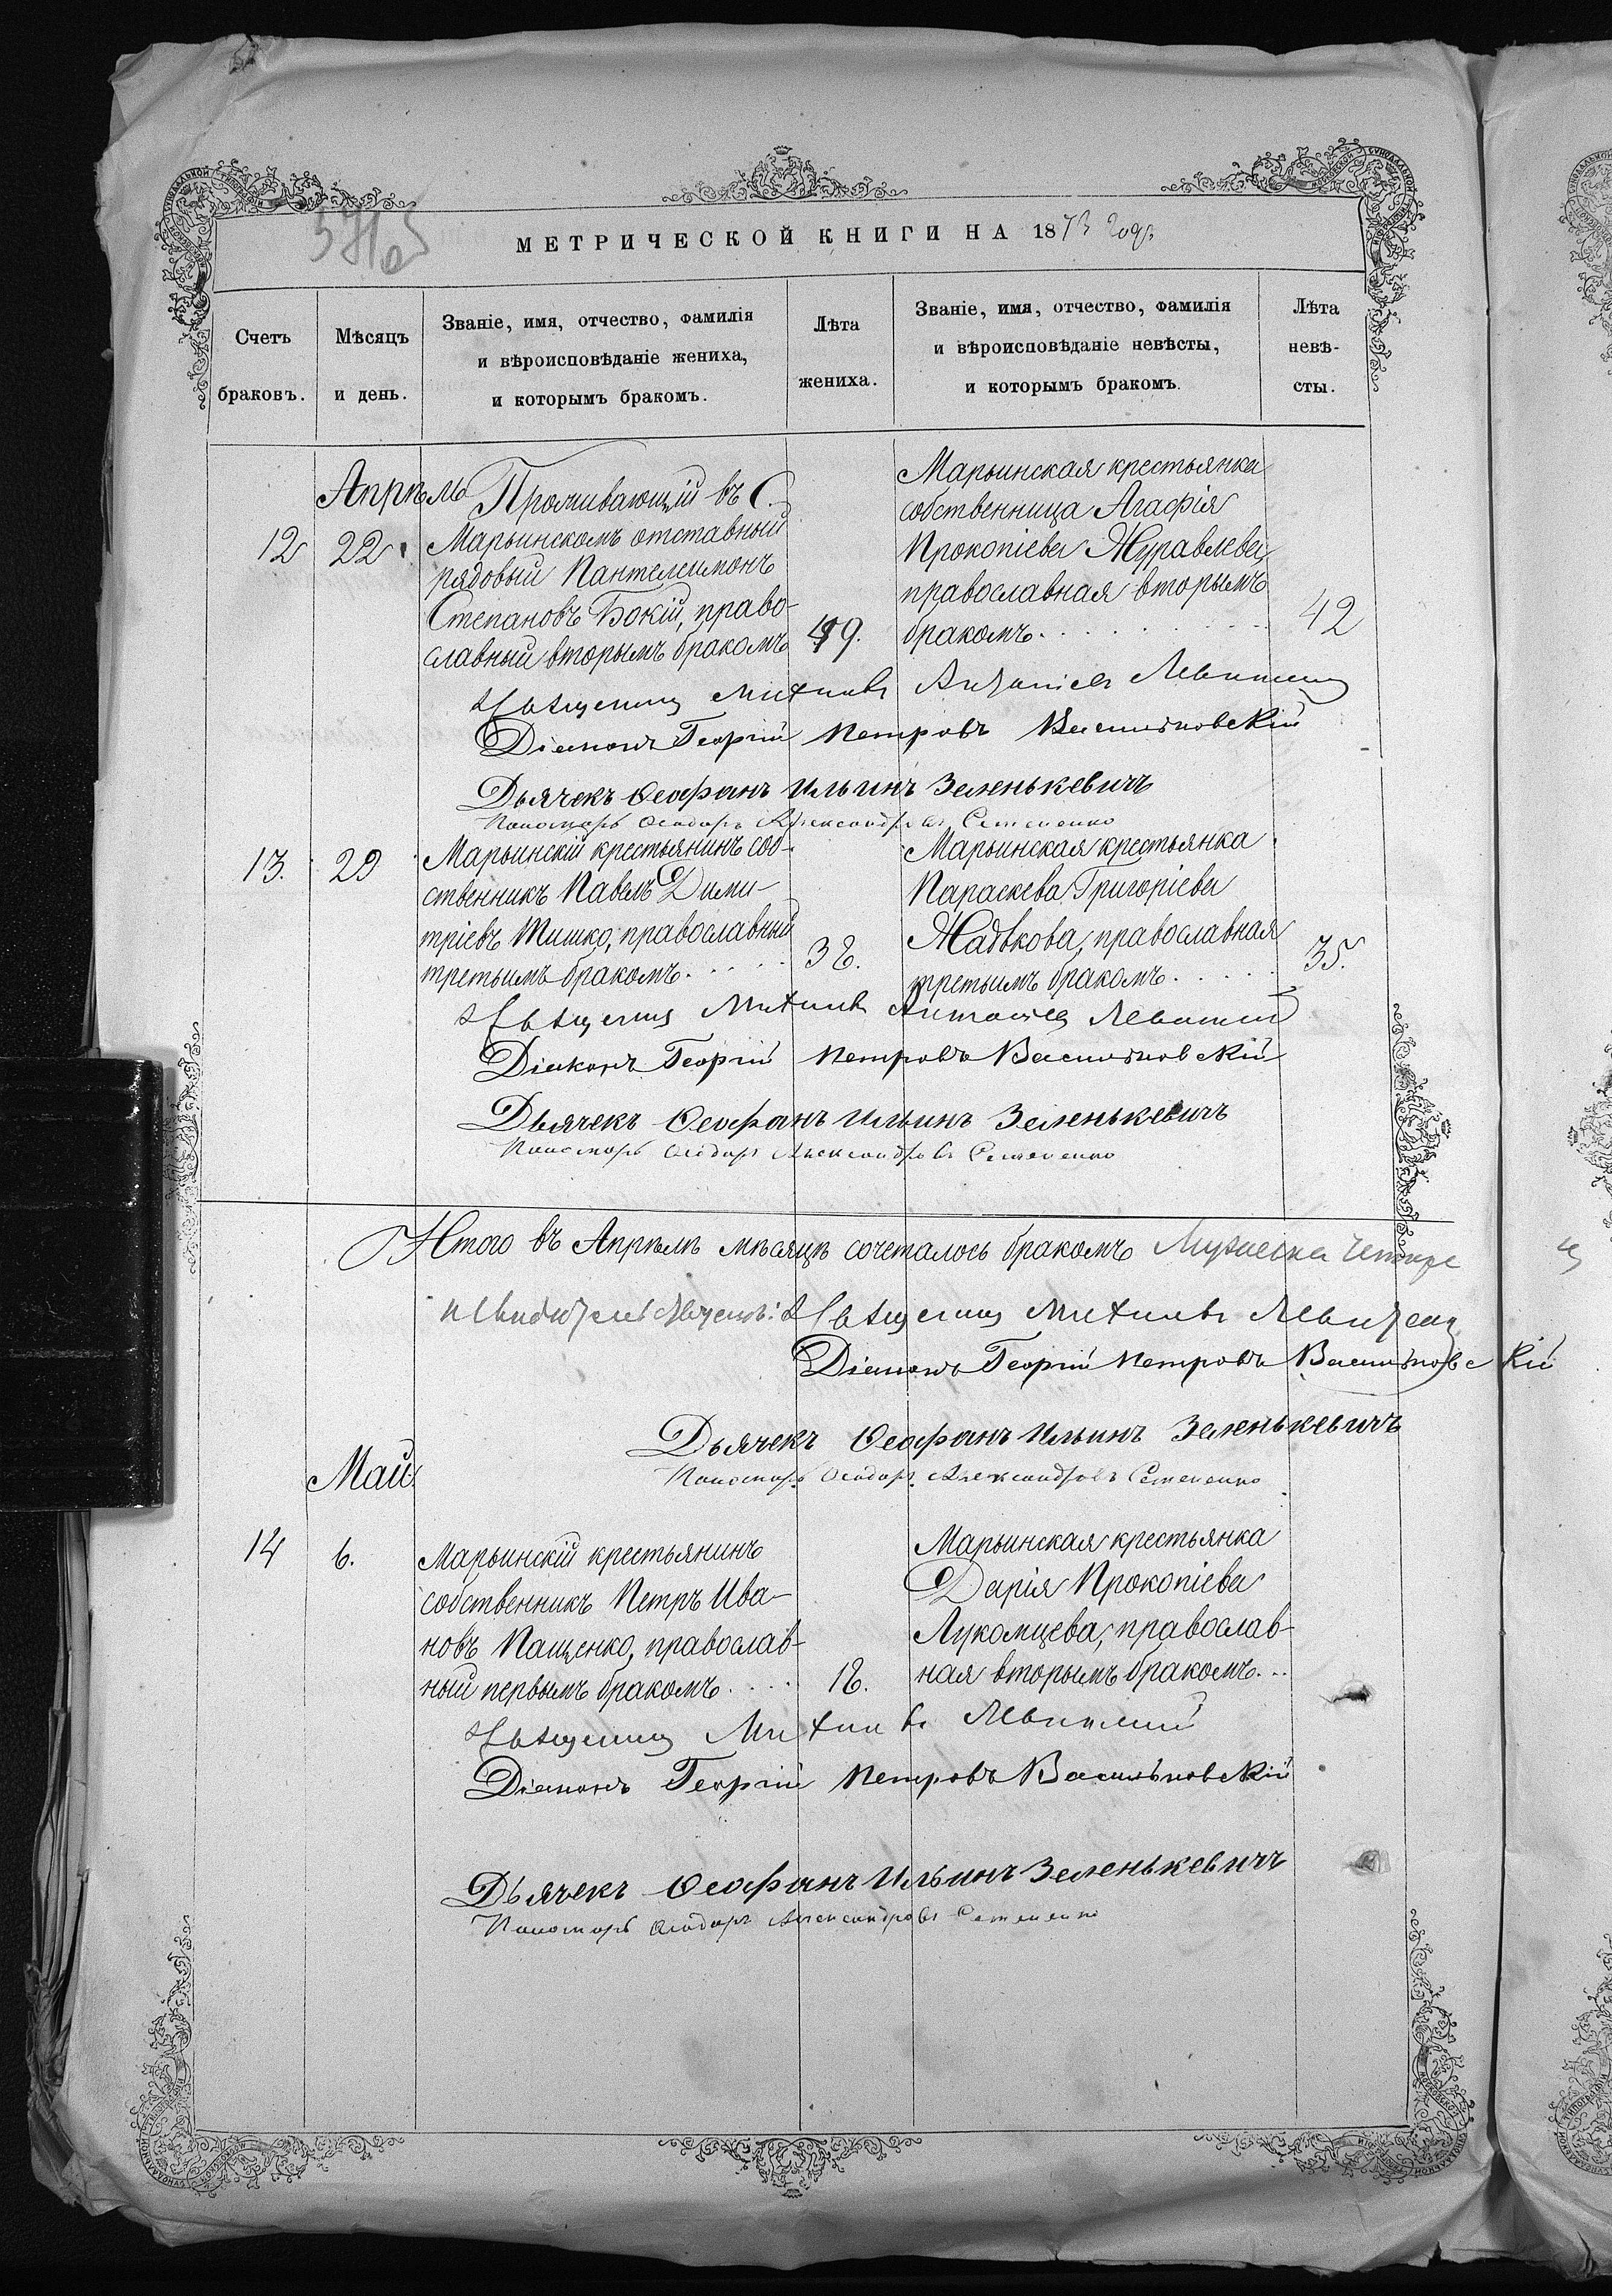 МЕТРИЧЕСКОЙ КНИГИ НА 1873 годъ
Счетъ
браковъ.
Мѣсяцъ
и день.
Званіе, имя, отчество, фамилія
и вѣроисповѣданіе жениха,
и которымъ бракомъ.
Лѣта
жениха.
Званіе, имя, отчество, фамилія
и вѣроисповѣданіе невѣсты,
и которымъ бракомъ.
Лѣта
невѣ-
сты.
Апрѣль
12
22
Проживающій въ С.
Марьинскомъ отставный
рядовый Пантелеимонъ
Степановъ Бокій, право-
славный вторымъ бракомъ
49.
Марьинская крестьянка
собственница Агафія
Прокопіева Журавлева,
православная вторымъ
бракомъ
42
Священникъ Михаилъ Антоніевъ Левитскій
Діаконъ Георгій Петровъ Васильковскій
Дьячекъ Ѳеофанъ Ильинъ Зеленькевичъ
Пономарь Ѳеодоръ Александровъ Семененко
13.
29
Марьинскій крестьянинъ соб-
ственникъ Павелъ Дими-
тріевъ Тишко, православный
третьимъ бракомъ
38.
Марьинская крестьянка
Параскева Григоріева
Жадѣкова, православная
третьимъ бракомъ
35.
Священникъ Михаилъ Антоніевъ Левитскій
Діаконъ Георгій Петровъ Васильковскій
Дьячекъ Ѳеофанъ Ильинъ Зеленькевичъ
Пономарь Ѳеодоръ Александровъ Семененко
Итого въ Апрѣлѣ мѣсяцѣ сочеталось бракомъ
Священникъ Михаилъ Левитскій
Діаконъ Георгій Петровъ Васильковскій
Дьячекъ Ѳеофанъ Ильинъ Зеленькевичъ
Пономарь Ѳеодоръ Александровъ Семененко
Май
14
6.
Марьинскій крестьянинъ
собственникъ Петръ Ива-
новъ Пащенко, православ-
ный первымъ бракомъ
18.
Марьинская крестьянка
Дарія Прокопіева
Лукомцева, православ-
ная вторымъ бракомъ
Священникъ Михаилъ Левитскій
Діаконъ Георгій Петровъ Васильковскій
Дьячекъ Ѳеофанъ Ильинъ Зеленькевичъ
Пономарь Ѳеодоръ Александровъ Семененко